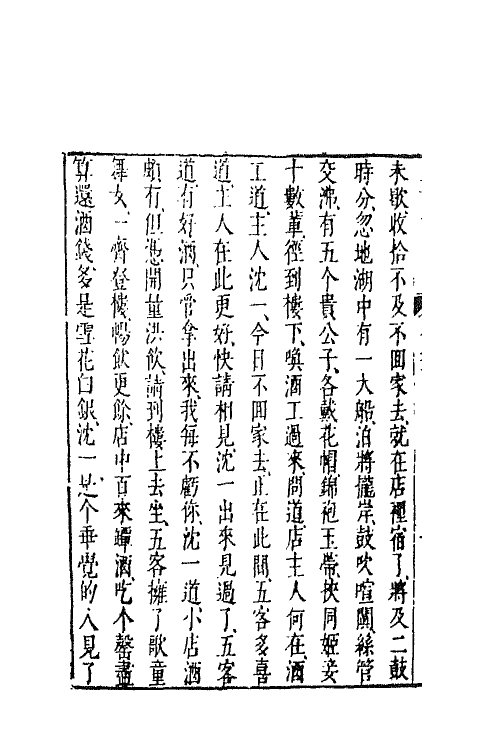 未歇收拾不及不囬家去就在店裡宿了將及二鼓
時分忽地湖中有一大船泊將攏岸鼓吹喧闐絲管
交沸有五个貴公子各戴花帽錦袍玉帶挾同姬妾
十數輩徑到樓下喚酒工過來問道店主人何在酒
工道主人沈一今日不囬家去正在此間五客多喜
道主人在此更好快請相見沈一出來見過了五客
道有好酒只管拿出來我每不虧你沈一道小店酒
頗有但憑開量洪飲請到樓上去坐五客擁了歌童
舞女一齊登樓暢飲更餘店中百來罈酒吃个罄盡
算還酒錢多是雪花白銀沈一是个乖覺的人見了